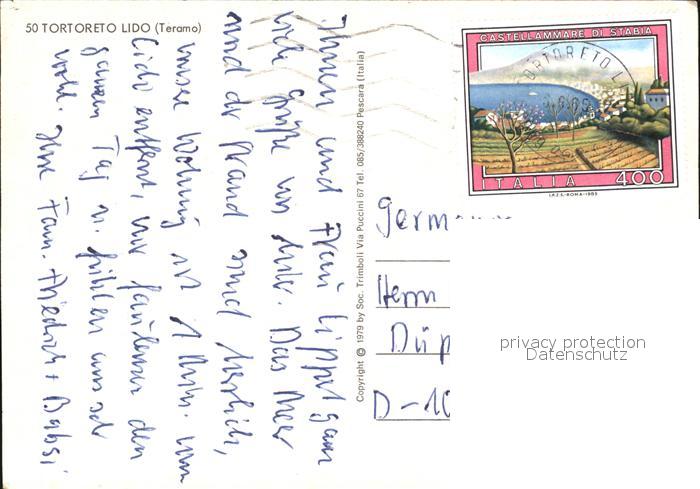 50 TORTORETO LIDO (Teramo)
Ihnen und Frau Lippel ganz
viele Grüße von hier. Das Meer
und der Strand sind herrlich,
unsere Wohnung ist 1 Min. vom
Lido entfernt, wir faulenzen den
ganzen Tag u. fühlen uns sehr
wohl. Ihre Fam. Friedrich + Babsi
Copyright © 1979 by Soc. Trimboli Via Puccini 67 Tel. 085/388240 Pescara (Italia)
CASTELLAMMARE DI STABIA
ORTORETO L
ITALIA 400
I.P.Z.S.-ROMA-1983
Germ
Herrn
Düp
D-10
privacy protection
Datenschutz